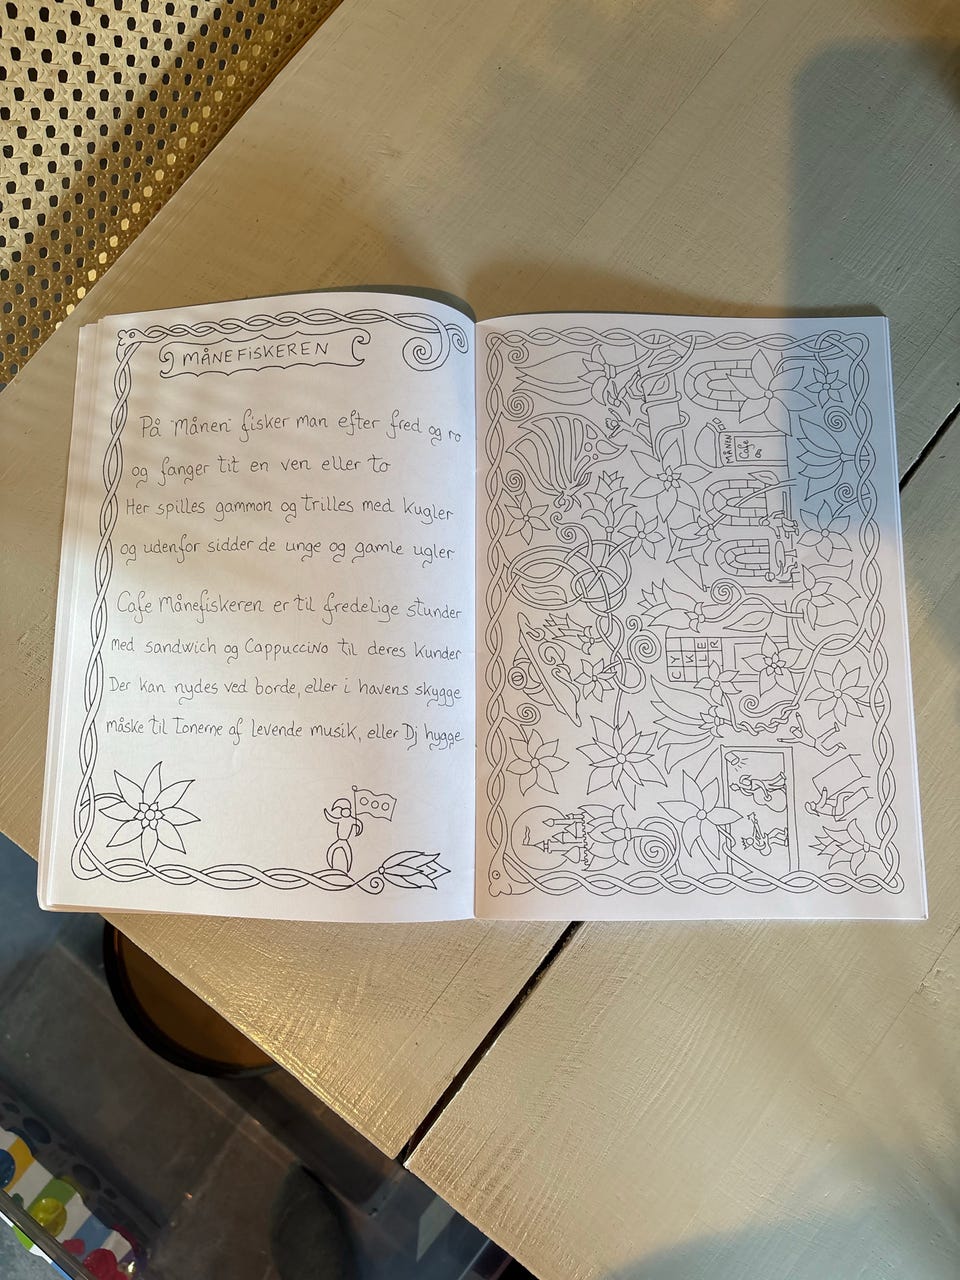 MÅNEFISKEREN
På "Månen" fisker man efter fred og ro
og fanger tit en ven eller to
Her spilles gammon og trilles med kugler
og udenfor sidder de unge og gamle ugler
Cafe Månefiskeren er til fredelige stunder
med sandwich og Cappuccino til deres kunder
Der kan nydes ved borde, eller i havens skygge
måske til tonerne af levende musik, eller Dj hygge
MÅNEN
Cafe
CYKLER